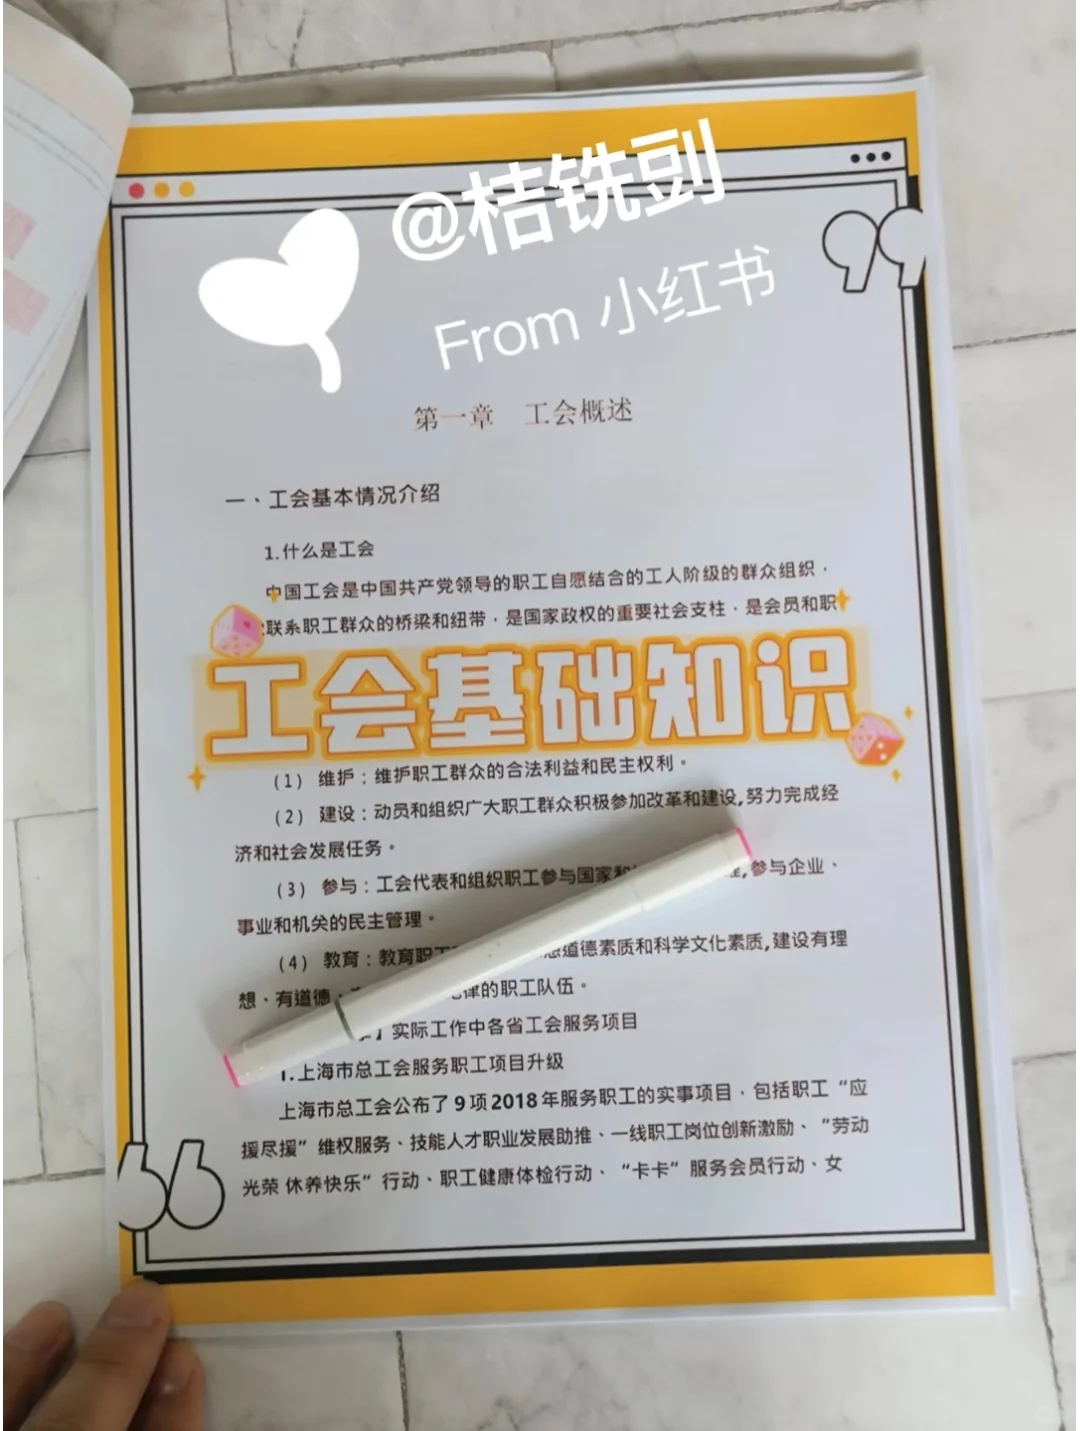 @桔铣剅
From 小红书
第一章 工会概述
一、工会基本情况介绍
1.什么是工会
中国工会是中国共产党领导的职工自愿结合的工人阶级的群众组织，
联系职工群众的桥梁和纽带，是国家政权的重要社会支柱，是会员和职
工会基础知识
（1） 维护：维护职工群众的合法利益和民主权利。
（2） 建设：动员和组织广大职工群众积极参加改革和建设,努力完成经
济和社会发展任务。
（3） 参与：工会代表和组织职工参与国家和 ,参与企业、
事业和机关的民主管理。
（4） 教育：教育职 道德素质和科学文化素质,建设有理
想、有道德、 律的职工队伍。
】实际工作中各省工会服务项目
1.上海市总工会服务职工项目升级
上海市总工会公布了9项2018年服务职工的实事项目，包括职工“应
援尽援”维权服务、技能人才职业发展助推、一线职工岗位创新激励、“劳动
光荣 休养快乐”行动、职工健康体检行动、“卡卡”服务会员行动、女